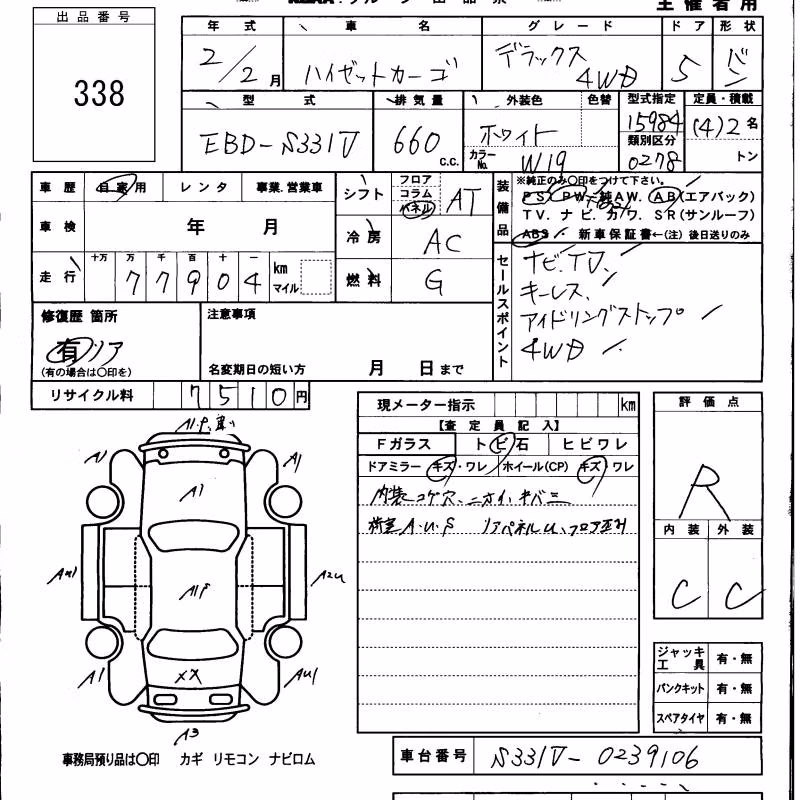 主催者用
出品番号
338
年式 車名 グレード ドア 形状
2/2月 ハイゼットカーゴ デラックス 4WD 5 バン
型式 排気量 外装色 色替 型式指定 定員・積載
EBD-S331V 660 c.c. ホワイト 15984 (4)2名
カラーNo. W19 類別区分 0278 トン
車歴 自家用 レンタ 事業.営業車
車検 年 月
走行 十万 万 千 百 十 一
77904 km マイル
シフト フロア コラム パネル AT
冷房 AC
燃料 G
装備品 ※純正のみ○印をつけて下さい。
PS. PW. 純AW. AB(エアバック)
TV. ナビ. カワ. SR(サンルーフ)
ABS. 新車保証書←(注) 後日送りのみ
セールスポイント
ナビ.TV
キーレス、
アイドリングストップ
4WD
修復歴 箇所
有 リア
(有の場合は○印を)
注意事項
名変期日の短い方 月 日まで
リサイクル料 7510円
現メーター指示 km
【査定員記入】
Fガラス トビ石 ヒビワレ
ドアミラー キズ・ワレ ホイール(CP) キズ・ワレ
内装コゲ穴、ニオイ、キバミ
荷室A.U.S リアパネルU、フロア歪み
評価点
R
内装 外装
C C
A1
A1
A1
A2U
A1
AU1
XX
A3
ジャッキ工具 有・無
パンクキット 有・無
スペアタイヤ 有・無
事務局預り品は○印 カギ リモコン ナビロム
車台番号 S331V-0239106